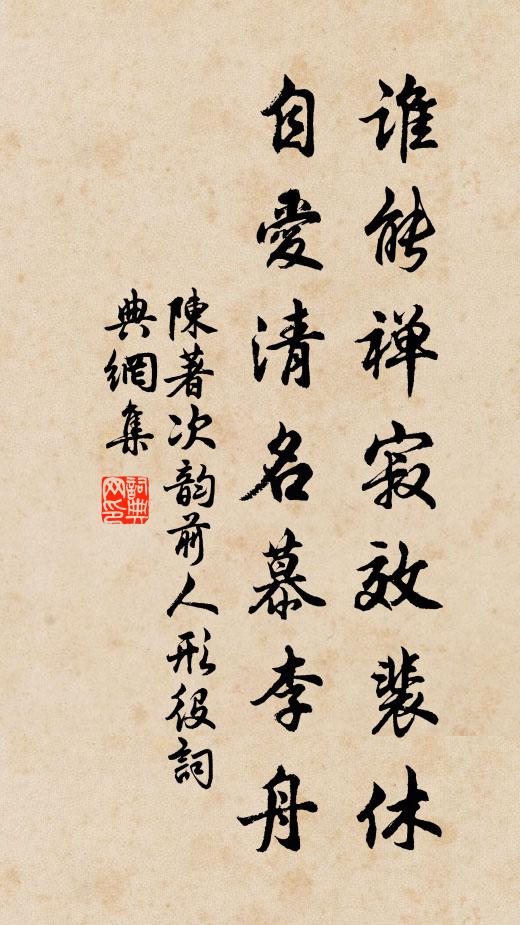 誰能禪寂效裴休
自愛清名慕李舟
陳著次韵前人形役詞
典網集
詞典網印